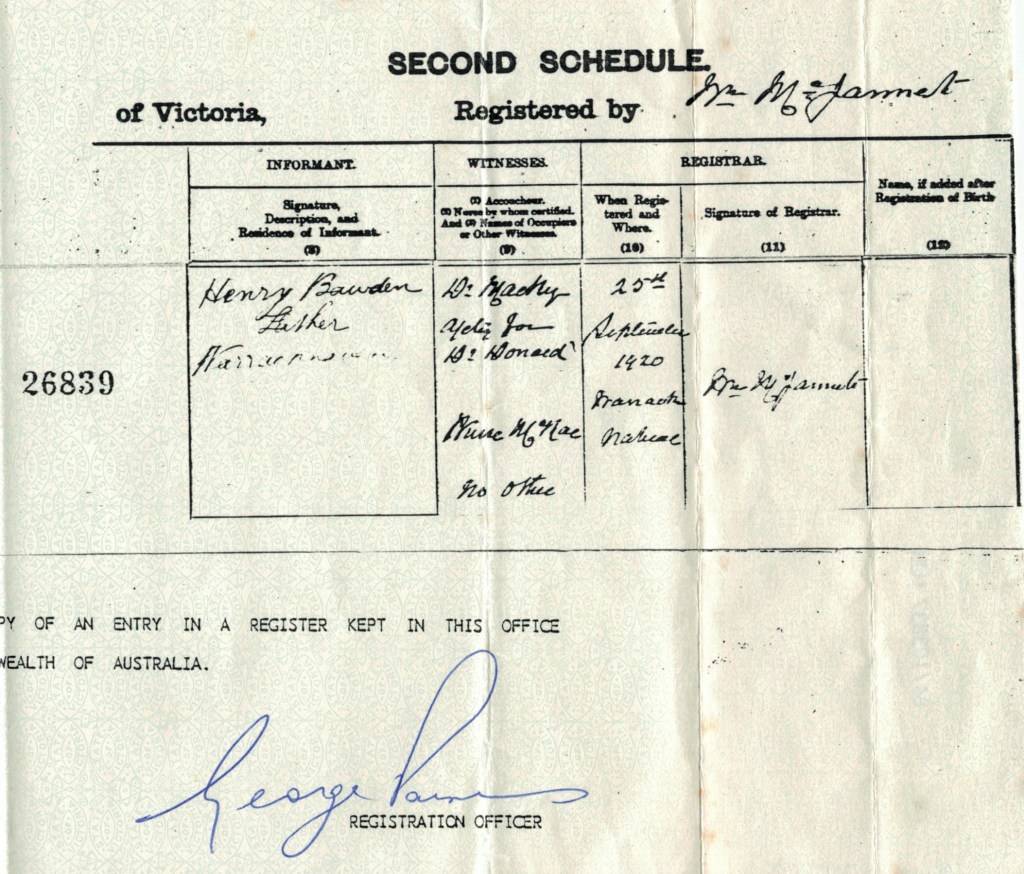 SECOND SCHEDULE.
of Victoria, Registered by Wm McJannet
INFORMANT. WITNESSES. REGISTRAR. Name, if added after Registration of Birth
Signature, Description, and Residence of Informant.
(1) Accoucheur.
(2) Nurse by whom certified.
And (3) Names of Occupiers
or Other Witnesses.
When Registered and Where.
Signature of Registrar.
(8) (9) (10) (11) (12)
Henry Bawden
Father
26839
Dr Macky
for
Dr Donald
Nurse McRae
No Other
25th
September
1920
Wm McJannet
PY OF AN ENTRY IN A REGISTER KEPT IN THIS OFFICE
WEALTH OF AUSTRALIA.
George
REGISTRATION OFFICER